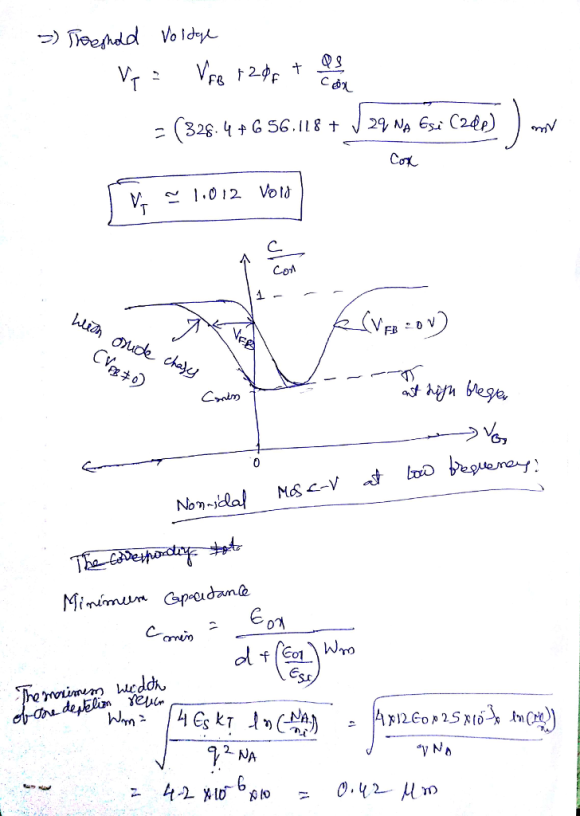 => Threshold Voltage
V_T = V_FB + 2φ_F + QS/Cox
= (328.4 + 656.118 + √(2q N_A E_Si (2φ_P))/Cox) mV
V_T ≃ 1.012 Volt
C/Cox
1
With oxide charge
(V_FB ≠ 0)
V_FB
(V_FB = 0V)
Cmin
at high freque
V_Gs
0
Non-idal MOS C-V at low frequency:
Minimum Capacitance
C min = Eox/(d + (Eox/Esi) Wm)
The maximum width
of the depletion
Wm = √(4 Es KT ln(NA/ni)/(q² NA)) = √(4×12Eo×25×10⁻³× ln(NA/ni)/(q NA))
= 4.2 × 10⁻⁶ × 10 = 0.42 μm